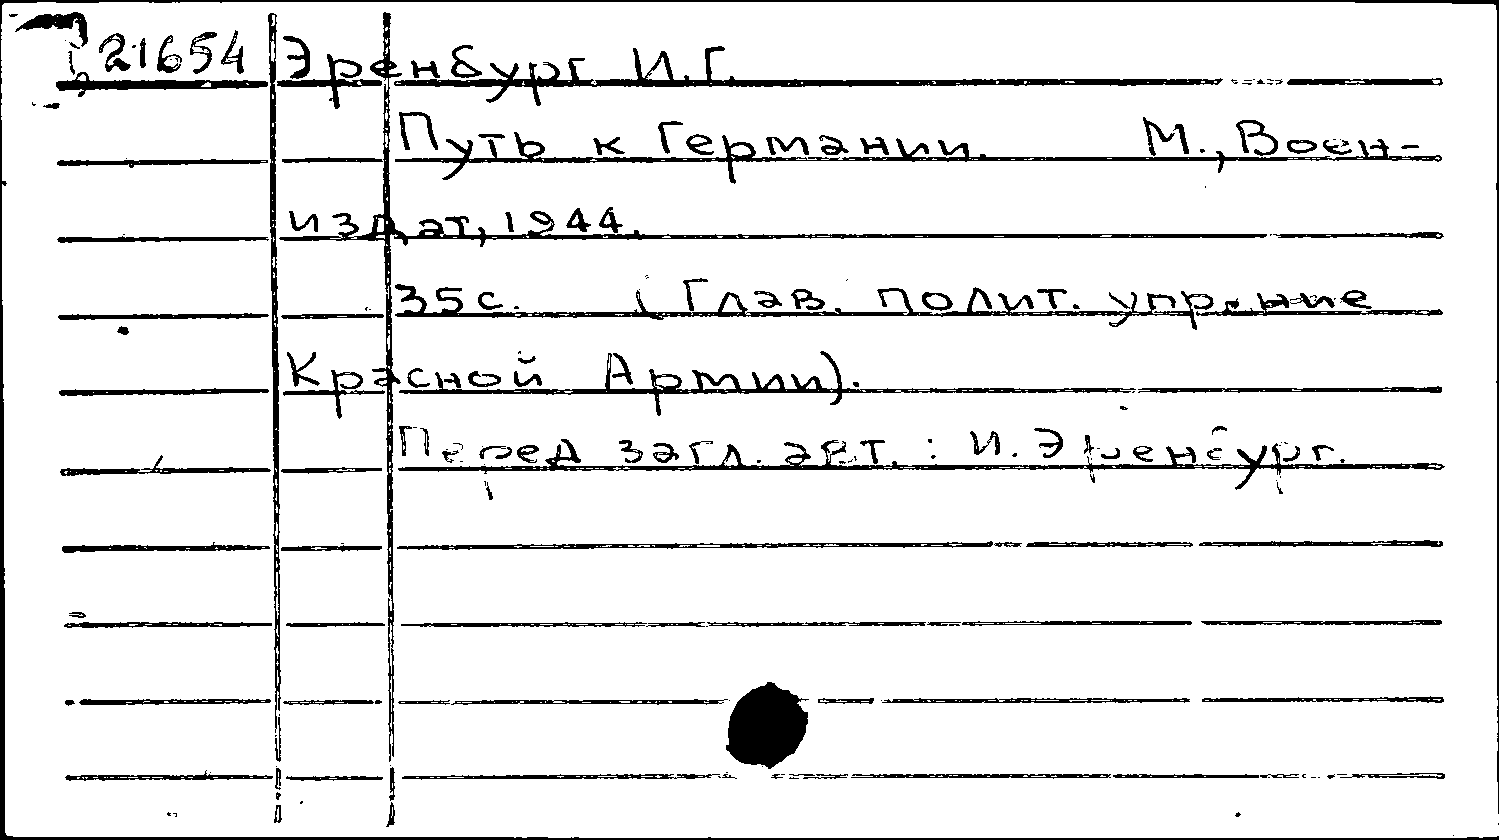 21654 Эренбург И.Г.
Путь к Германии. М., Воен-
издат, 1944.
35 с. (Глав. полит. упр-ние
Красной Армии).
Перед загл. авт.: И. Эренбург.